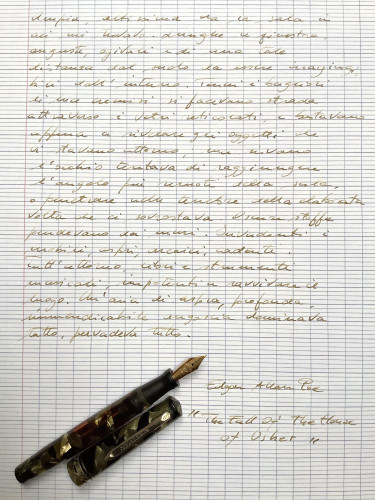 ampia, altissima da la sala in
cui mi trovavo. Lunghe e finestre,
anguste, ogivali e di una tale
distanza dal suolo da essere
bili dall'interno. Tenui i bagliori
di luce cremisi si facevano strada
attraverso i vetri reticolati, e bastavano
appena a rivelare gli oggetti che
vi stavano attorno, ma invano
l'occhio tentava di raggiungere
l'angolo più remoto della sala,
o penetrare nelle tenebre della
volta che ci sovrastava. Oscure stoffe
pendevano dai muri. Sovrabbondanti i
mobili, aspri, arcaici, cadenti.
Tutt'attorno, libri e strumenti
musicali, impotenti a ravvivare il
luogo. Un'aria di aspra, profonda,
immedicabile angoscia dominava
tutto, pervadeva tutto.
Edgar Allan Poe
"The Fall Of The House
of Usher"